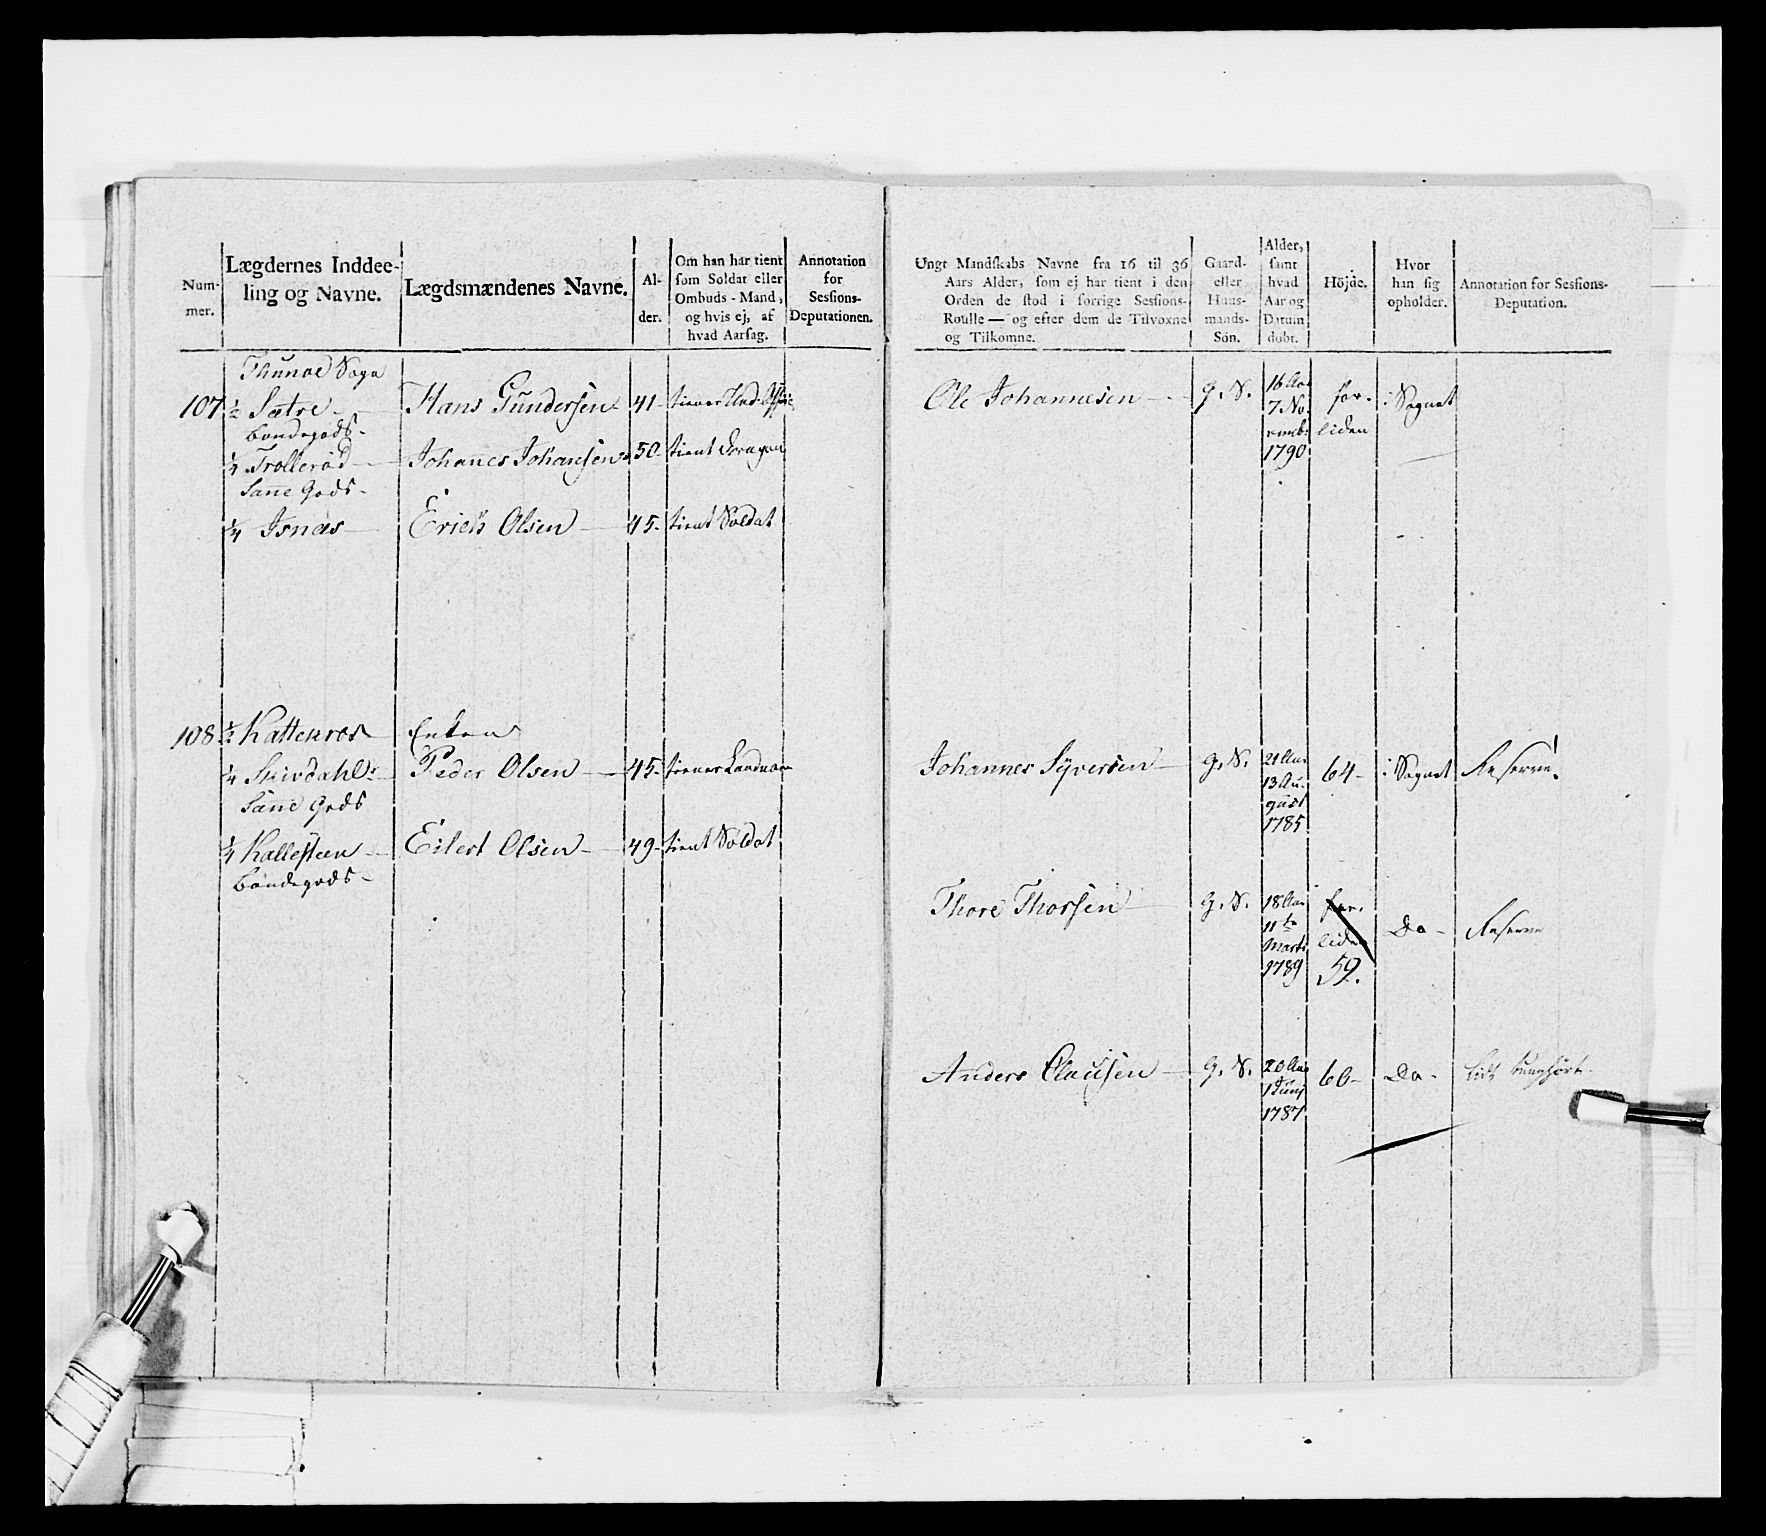 Num-
mer.
Lægdernes Inddee-
ling og Navne.
Lægdsmændenes Navne.
Al-
der.
Om han har tient
som Soldat eller
Ombuds-Mand,
og hvis ej, af
hvad Aarsag.
Annotation
for
Sessions-
Deputationen.
Thunøe Sogn
107 ½ Sætre Hans Gundersen 41
Bondegods
¼ Trollerød Johanes Johansen 50 tient Dragon
Sanne Gods
¼ Isnæs Erich Olsen 45 tient Soldat
108 ½ Kattenroe Enken
¼ Skivdahl Peder Olsen 45
Sanne Gods
¼ Kallesteen Eilert Olsen 49 tient Soldat
Bondegods
Ungt Mandskabs Navne fra 16 til 36
Aars Alder, som ej har tient i den
Orden de stod i forrige Sessions-
Roulle — og efter dem de Tilvoxne
og Tilkomne.
Gaard-
eller
Huus-
mands-
Sön.
Alder,
samt
hvad
Aar og
Datum
döbt.
Höjde.
Hvor
han sig
opholder.
Annotation for Sessions-
Deputation.
Ole Johannesen G. S. 16 Aar for- i Sognet
7 No-
vemb: liden
1790
Johannes Syversen G. S. 21 Aar 64 i Sognet Reserve.
13 Au-
gust
1785
Thore Thorsen G. S. 18 Aar for- Do Reserve
11te
Marts liden
1789 59.
Anders Clausen G. S. 20 Aar 60 Do
1 Junj
1787